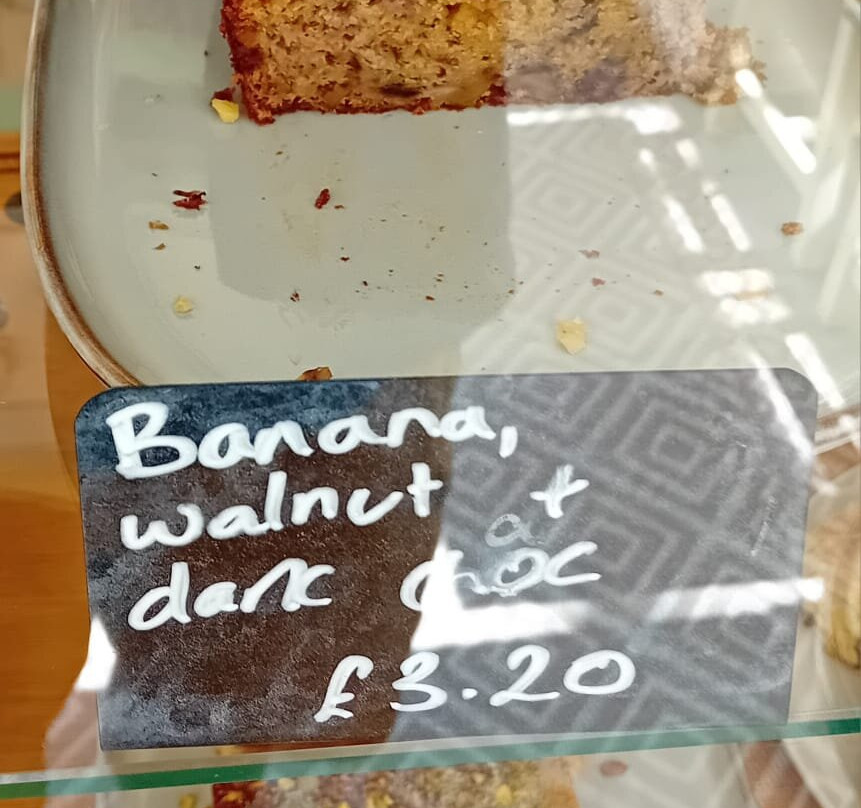 Banana,
walnut +
dark choc
£3.20